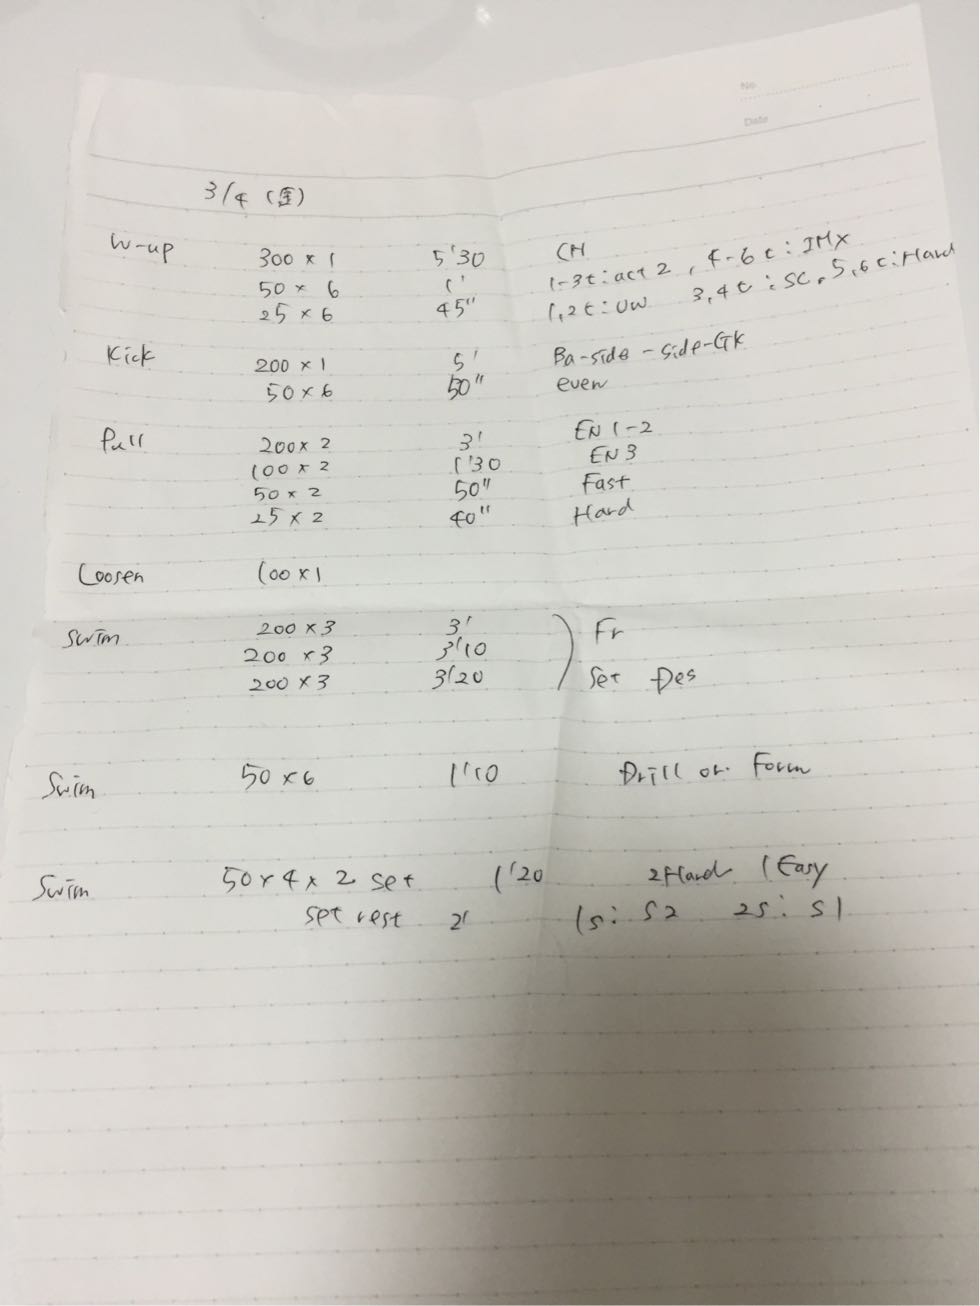 No.
Date
3/4 (金)
W-up 300 × 1 5'30 CH
50 × 6 1' 1-3t: act 2, 4-6t: IMX
25 × 6 45" 1,2t: UW 3,4t: SC, 5,6t: Hard
Kick 200 × 1 5' Ba-side-side-GK
50 × 6 50" even
Pull 200 × 2 3' EN 1-2
100 × 2 1'30 EN 3
50 × 2 50" Fast
25 × 2 40" Hard
Loosen 100 × 1
Swim 200 × 3 3' Fr
200 × 3 3'10
200 × 3 3'20 Set Des
Swim 50 × 6 1'10 Drill or Form
Swim 50 × 4 × 2 set 1'20 2Hard 1Easy
set rest 2' 1s: S2 2s: S1